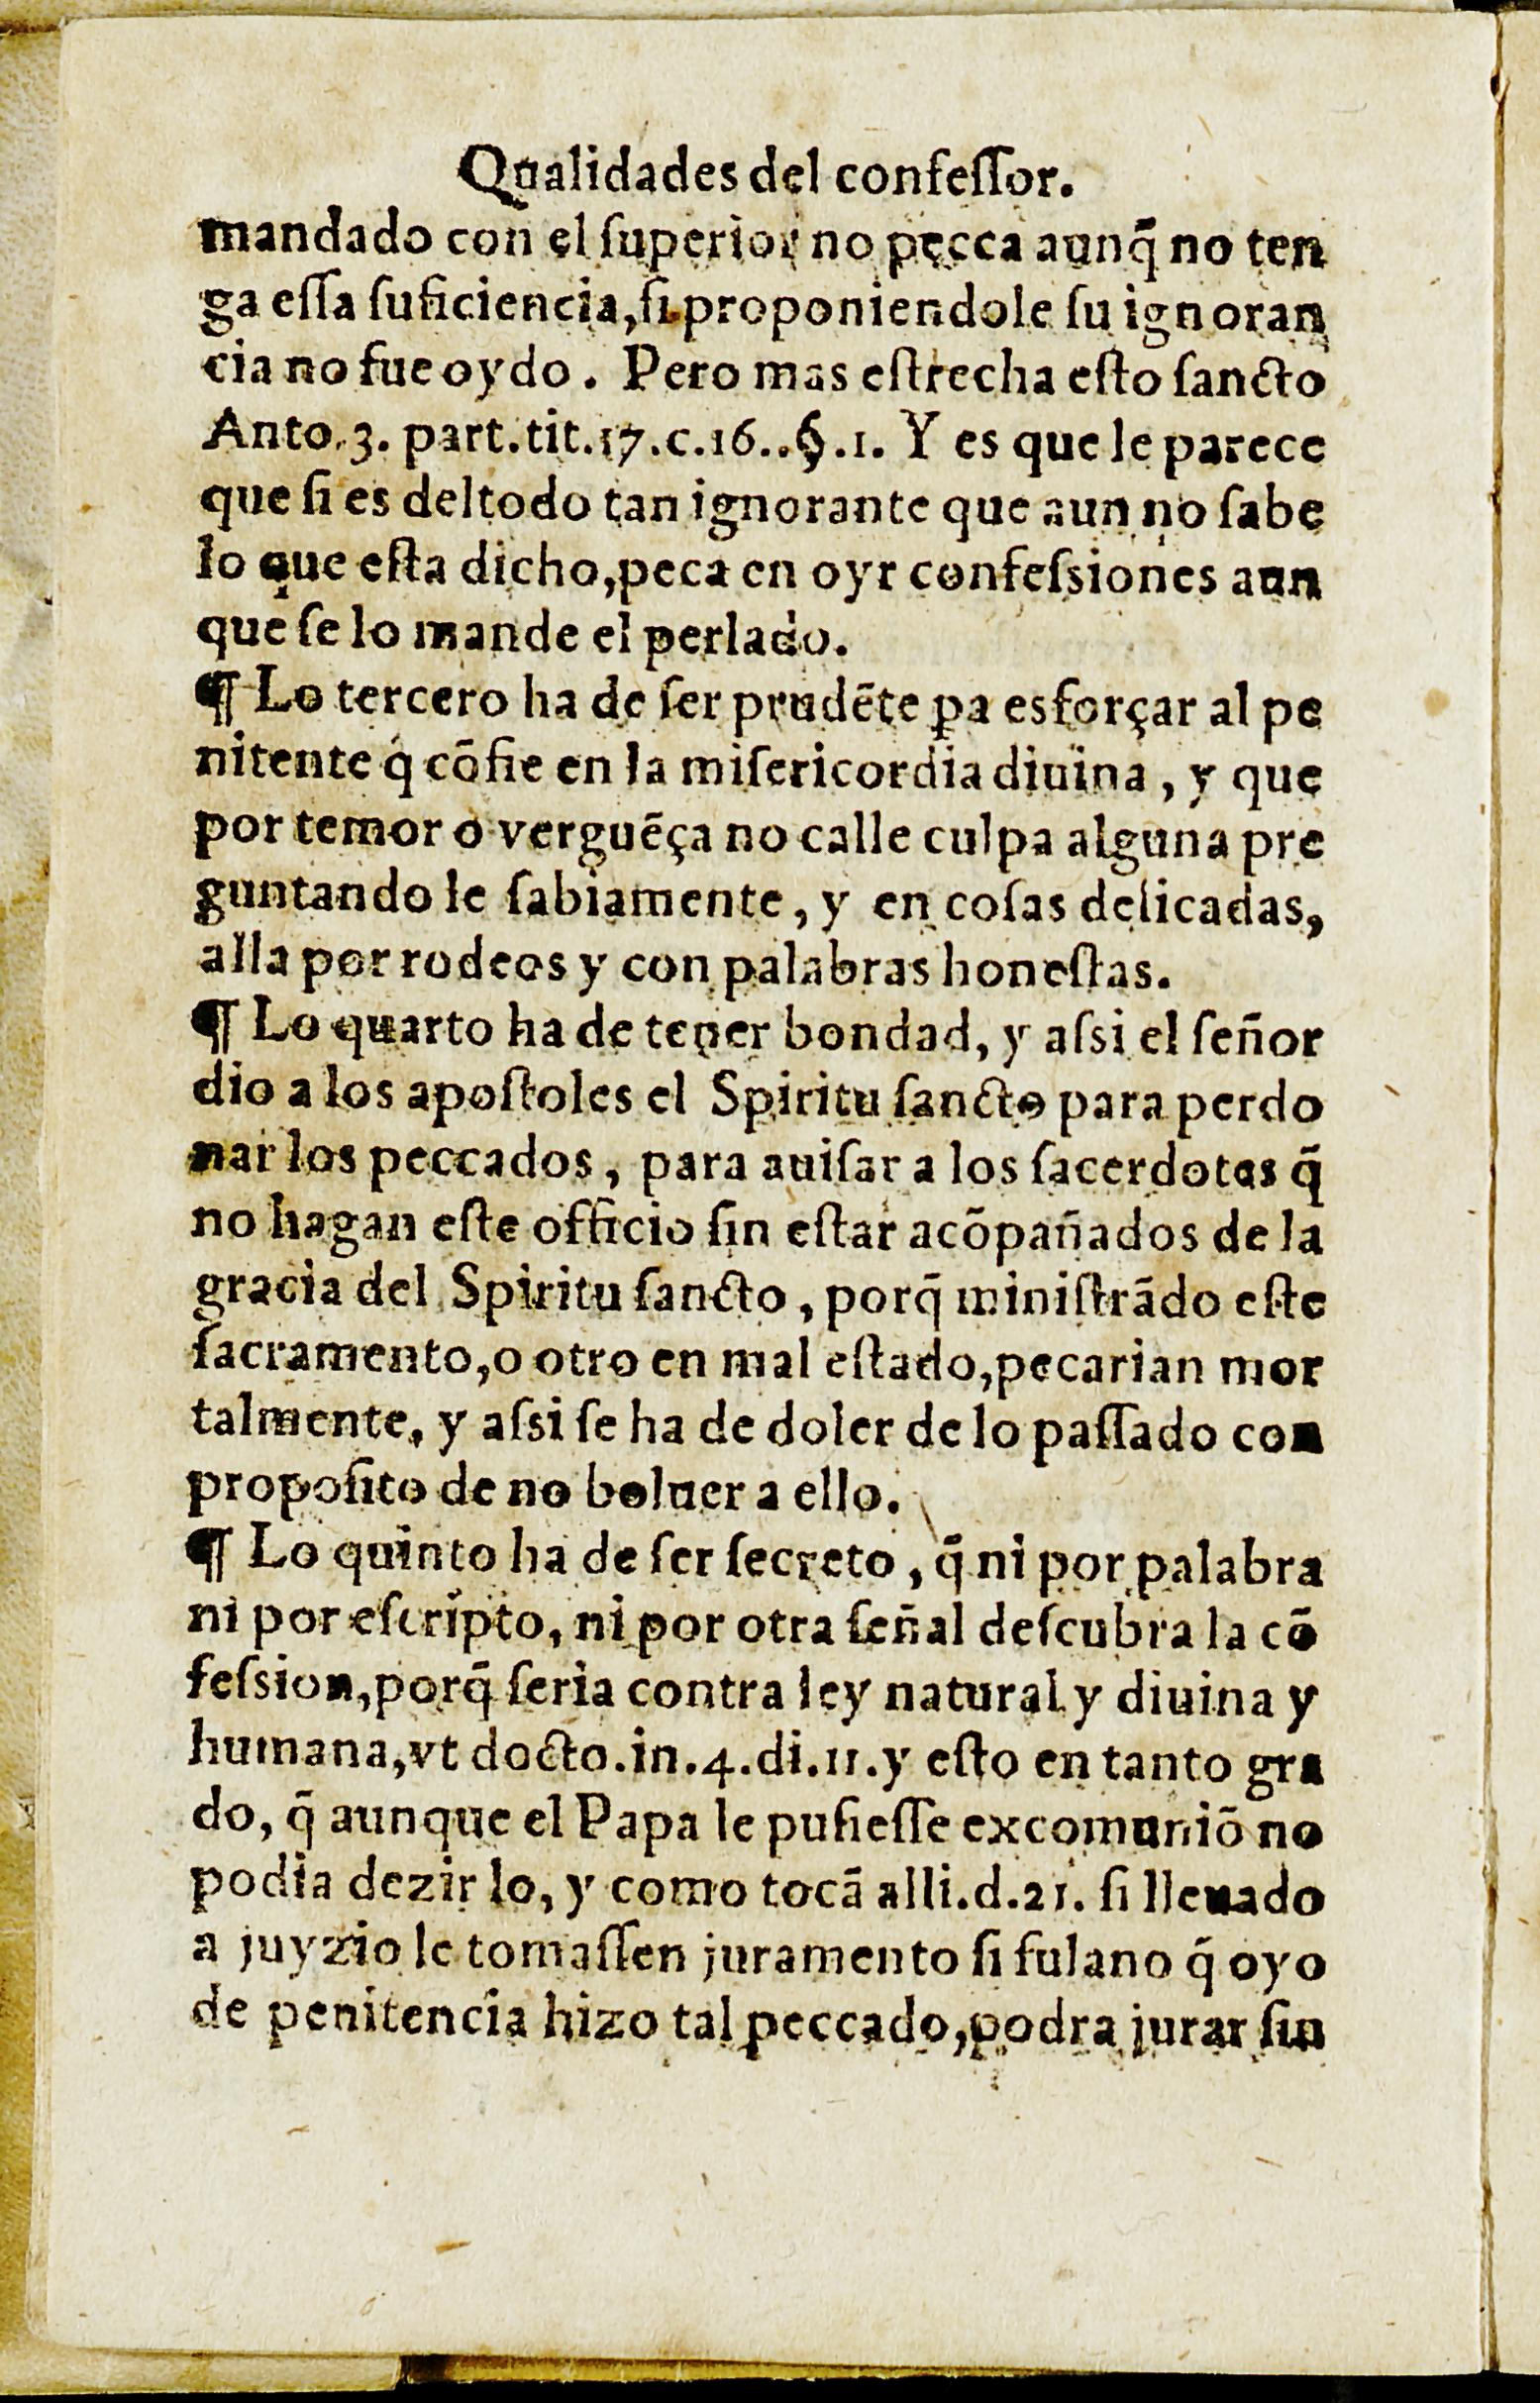 Qualidades del confeſſor.
mandado con el ſuperior no pecca aunq̃ no ten
ga eſſa ſuficiencia, ſi proponiendole ſu ignoran
cia no fue oydo. Pero mas eſtrecha eſto ſancto
Anto. 3. part. tit. 17. c. 16.. §. 1. Y es que le parece
que ſi es del todo tan ignorante que aun no ſabe
lo que eſta dicho, peca en oyr confeſsiones aun
que ſe lo mande el perlado.
¶ Lo tercero ha de ſer prudẽte ꝑa esforçar al pe
nitente q́ cõfie en la miſericordia diuina, y que
por temor o verguẽça no calle culpa alguna pre
guntando le ſabiamente, y en coſas delicadas,
alla por rodeos y con palabras honeſtas.
¶ Lo quarto ha de tener bondad, y aſsi el ſeñor
dio a los apoſtoles el Spiritu ſancto para perdo
nar los peccados, para auiſar a los ſacerdotes q̃
no hagan eſte officio ſin eſtar acõpañados de la
gracia del Spiritu ſancto, porq̃ miniſtrãdo eſte
ſacramento, o otro en mal eſtado, pecarian mor
talmente, y aſsi ſe ha de doler de lo paſſado con
propoſito de no boluer a ello.
¶ Lo quinto ha de ſer ſecreto, q̃ ni por palabra
ni por eſcripto, ni por otra ſeñal deſcubra la cõ
feſsion, porq̃ ſeria contra ley natural y diuina y
humana, vt docto. in. 4. di. 11. y eſto en tanto gra
do, q̃ aunque el Papa le puſieſſe excomuniõ no
podia dezir lo, y como tocã alli. d. 21. ſi lleuado
a juyzio le tomaſſen juramento ſi fulano q̃ oyo
de penitencia hizo tal peccado, podra jurar ſin